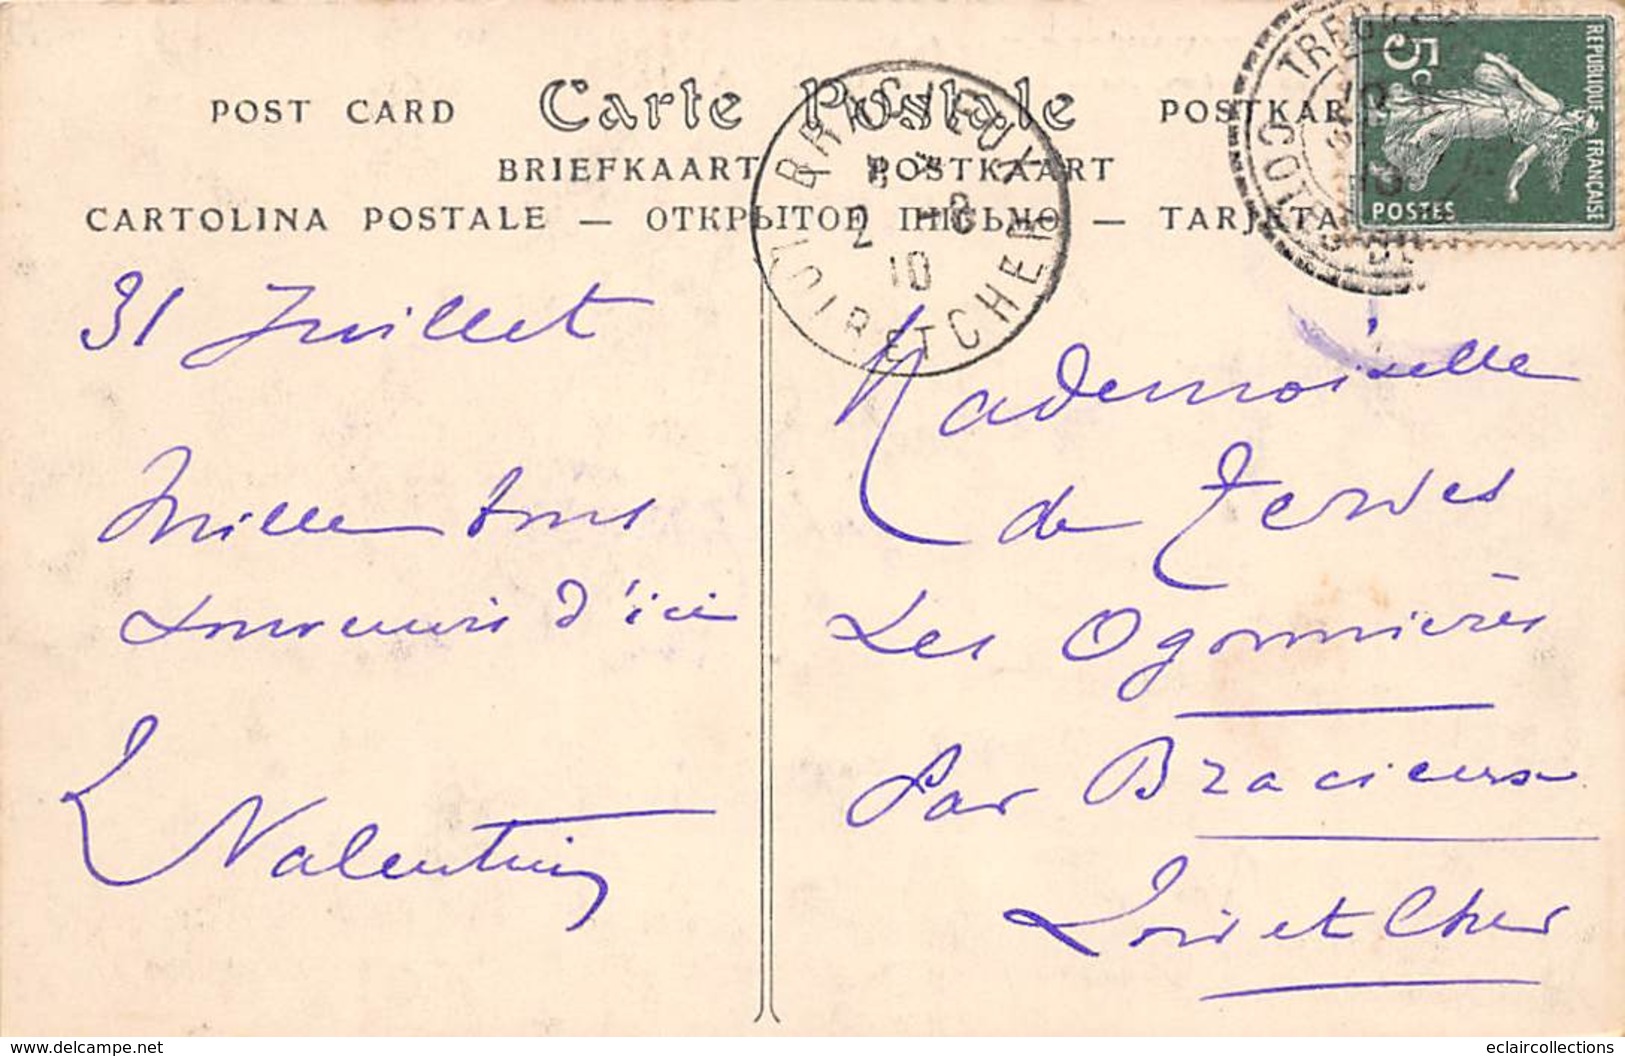 POST CARD Carte Postale POSTKAR
BRIEFKAART POSTKAART
CARTOLINA POSTALE — ОТКРЫТОЕ ПИСЬМО — TARJETA
BRACIEUX
2 -8
10
LOIR ET CHER
TREGUIER
COTES-DU-N
5c
REPUBLIQUE FRANÇAISE
POSTES
31 Juillet
Mille bons
souvenirs d'ici
L Valentin
Mademoiselle
de
Les Ogonnières
Par Bracieux
Loir et Cher
www.delcampe.net
eclaircollections